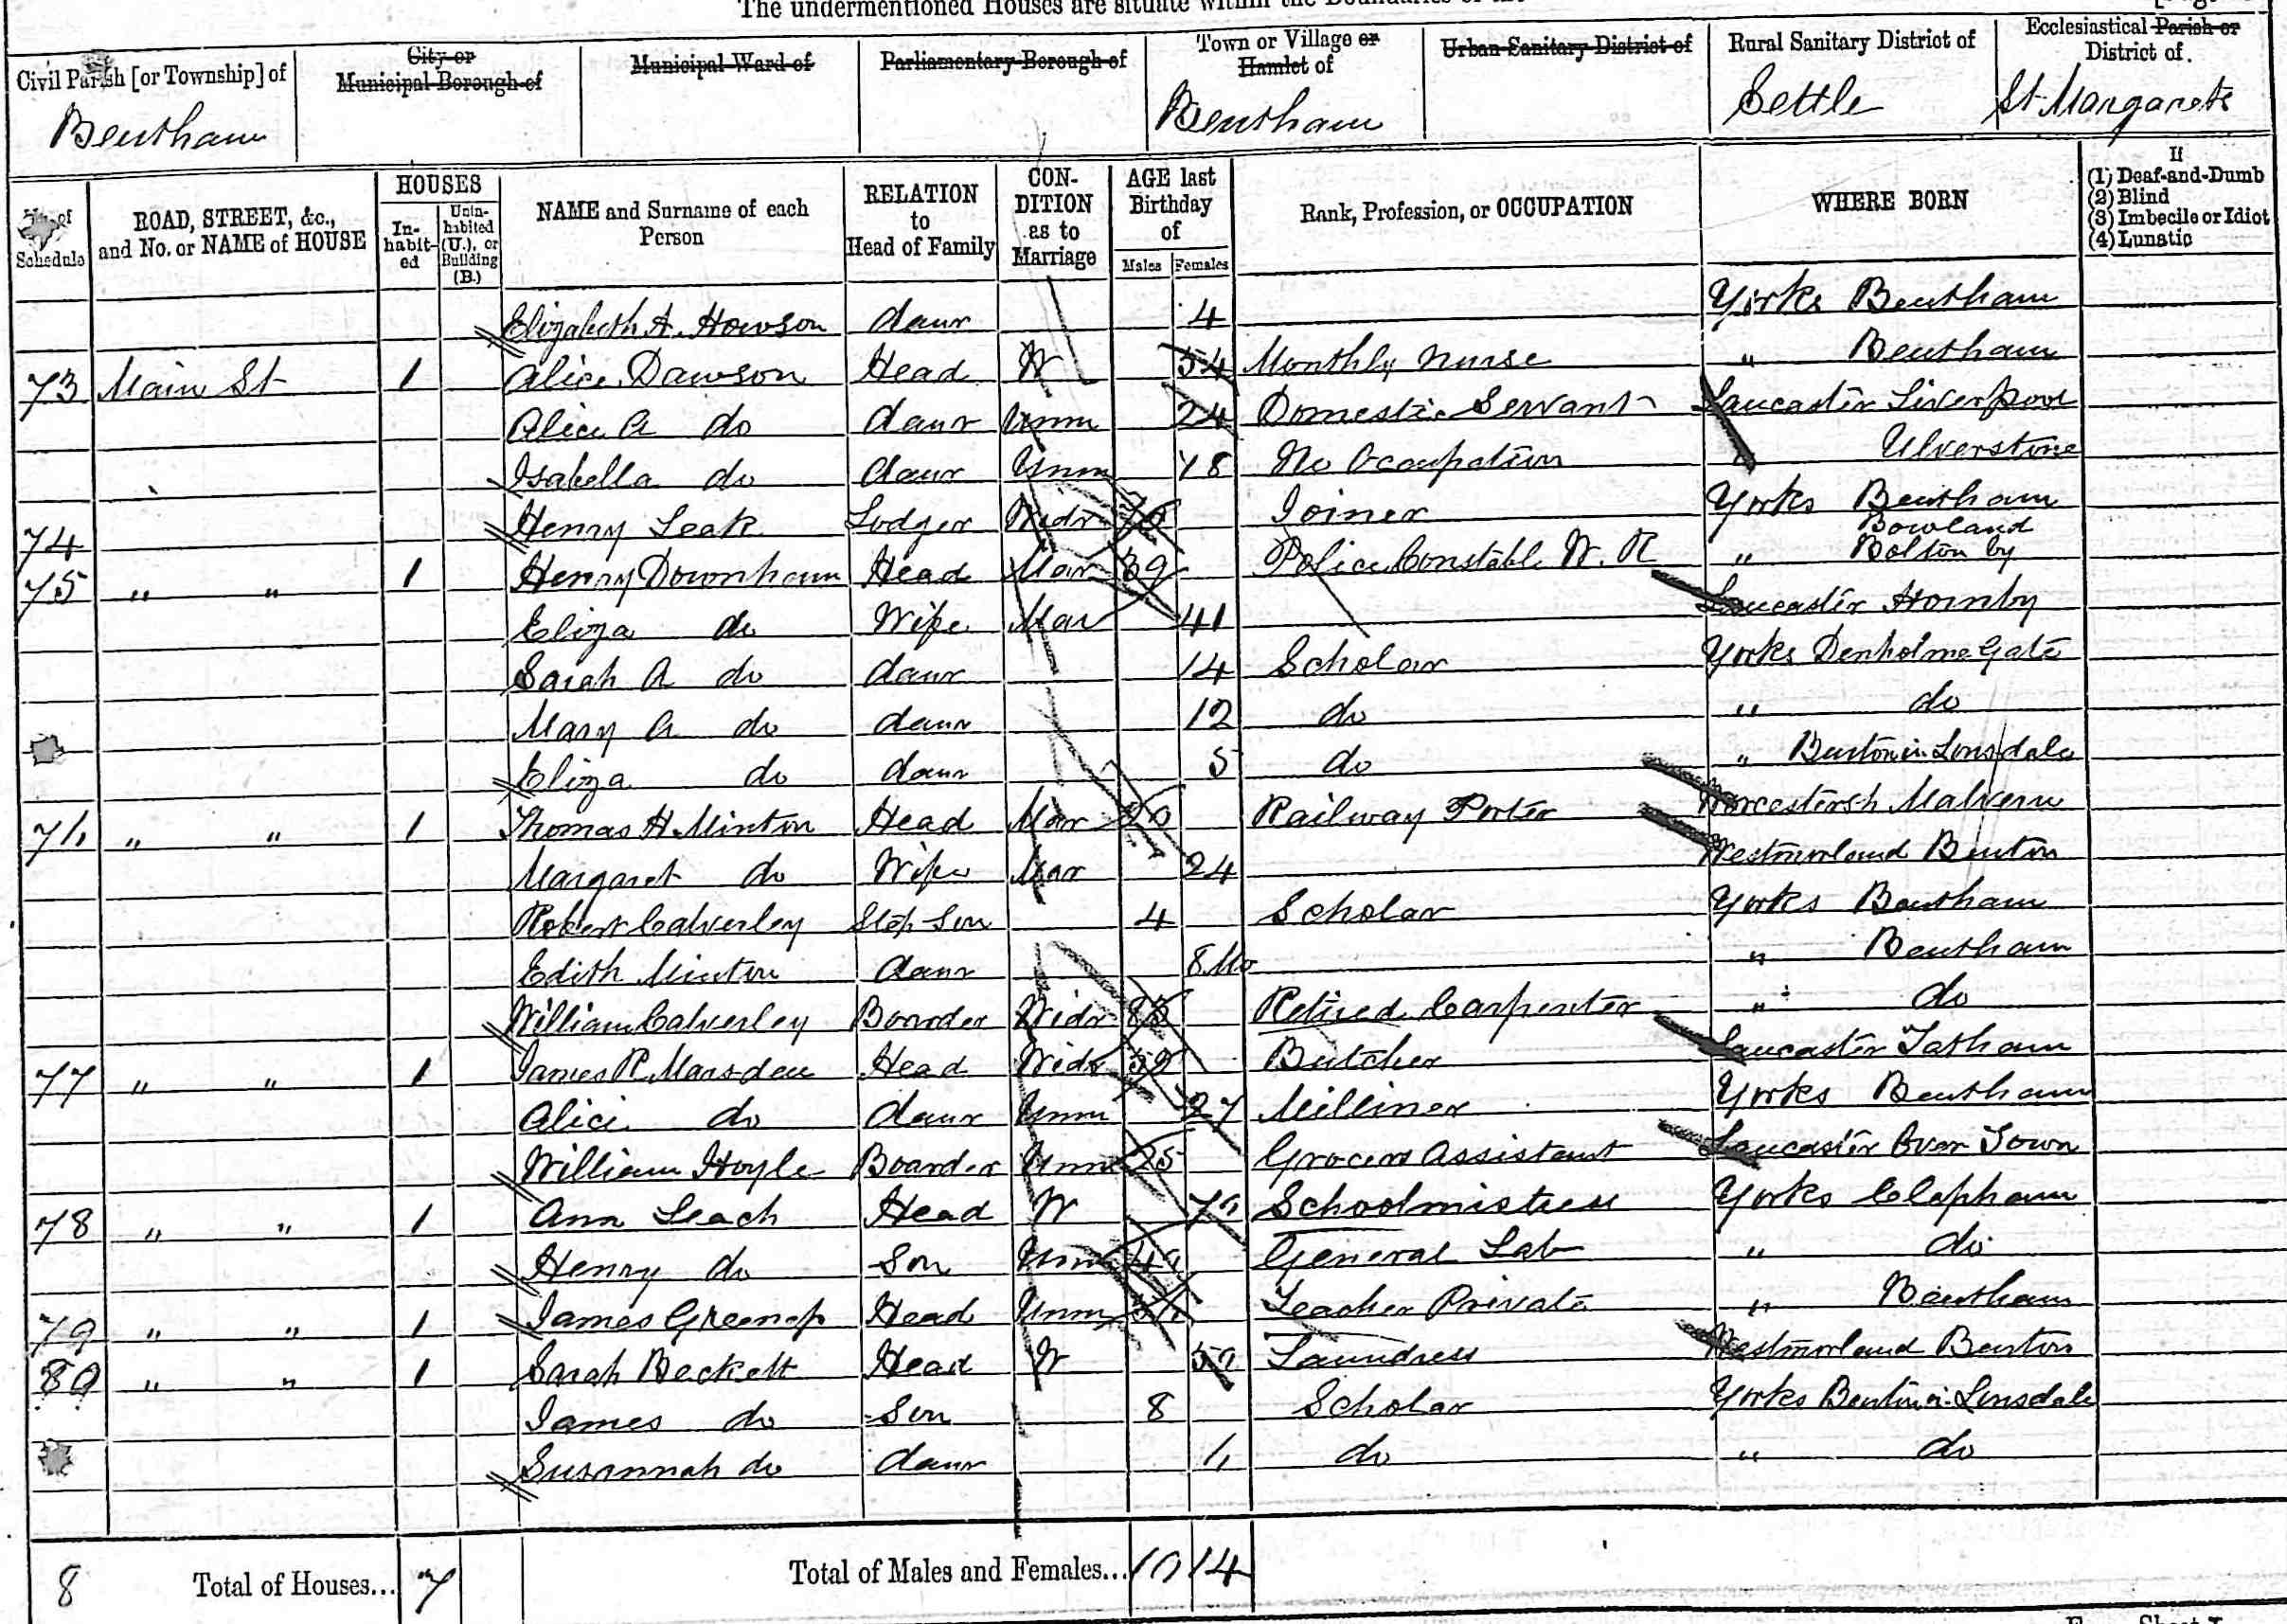 The undermentioned Houses are situate within the Boundaries of the
Civil Parish [or Township] of City or Municipal Borough of Municipal Ward of Parliamentary Borough of Town or Village or Hamlet of Urban Sanitary District of Rural Sanitary District of Ecclesiastical Parish or District of
Bentham Bentham Settle St. Margarets
No. of Schedule ROAD, STREET, &c., and No. or NAME of HOUSE HOUSES Inhabited Uninhabited (U.), or Building (B.) NAME and Surname of each Person RELATION to Head of Family CONDITION as to Marriage AGE last Birthday of Males Females Rank, Profession, or OCCUPATION WHERE BORN If (1) Deaf-and-Dumb (2) Blind (3) Imbecile or Idiot (4) Lunatic
Elizabeth A. Howson daur 4 Yorks Bentham
73 Main St 1 Alice Dawson Head W 54 Monthly Nurse " Bentham
Alice A do daur Unm 24 Domestic Servant Lancaster Liverpool
Isabella do daur Unm 18 No Occupation " Ulverstone
74 Henry Leak Lodger Widr Joiner Yorks Bentham
75 " " 1 Henry Downham Head Mar 39 Police Constable W. R " Bolton by Bowland
Eliza do Wife Mar 41 Lancaster Hornby
Sarah A do daur 14 Scholar Yorks Denholme Gate
Mary A do daur 12 do " do
Eliza do daur 5 do " Burton in Lonsdale
76 " " 1 Thomas H Minton Head Mar Railway Porter Worcestersh Malvern
Margaret do Wife Mar 24 Westmorland Burton
Robert Calverley Step Son 4 Scholar Yorks Bentham
Edith Minton daur 8 Mo " Bentham
William Calverley Boarder Widr 83 Retired Carpenter " do
77 " " 1 James R Marsden Head Widr 59 Butcher Lancaster Tatham
Alice do daur Unm 27 Milliner Yorks Bentham
William Hoyle Boarder Unm 25 Grocers Assistant Lancaster Over Town
78 " " 1 Ann Leach Head W Schoolmistress Yorks Clapham
Henry do Son Unm General Lab " do
79 " " 1 James Greenep Head Unm Teacher Private " Bentham
80 " " 1 Sarah Beckett Head W 52 Laundress Westmorland Burton
James do Son 8 Scholar Yorks Burton in Lonsdale
Susannah do daur 6 do " do
8 Total of Houses... 7 Total of Males and Females... 10 14